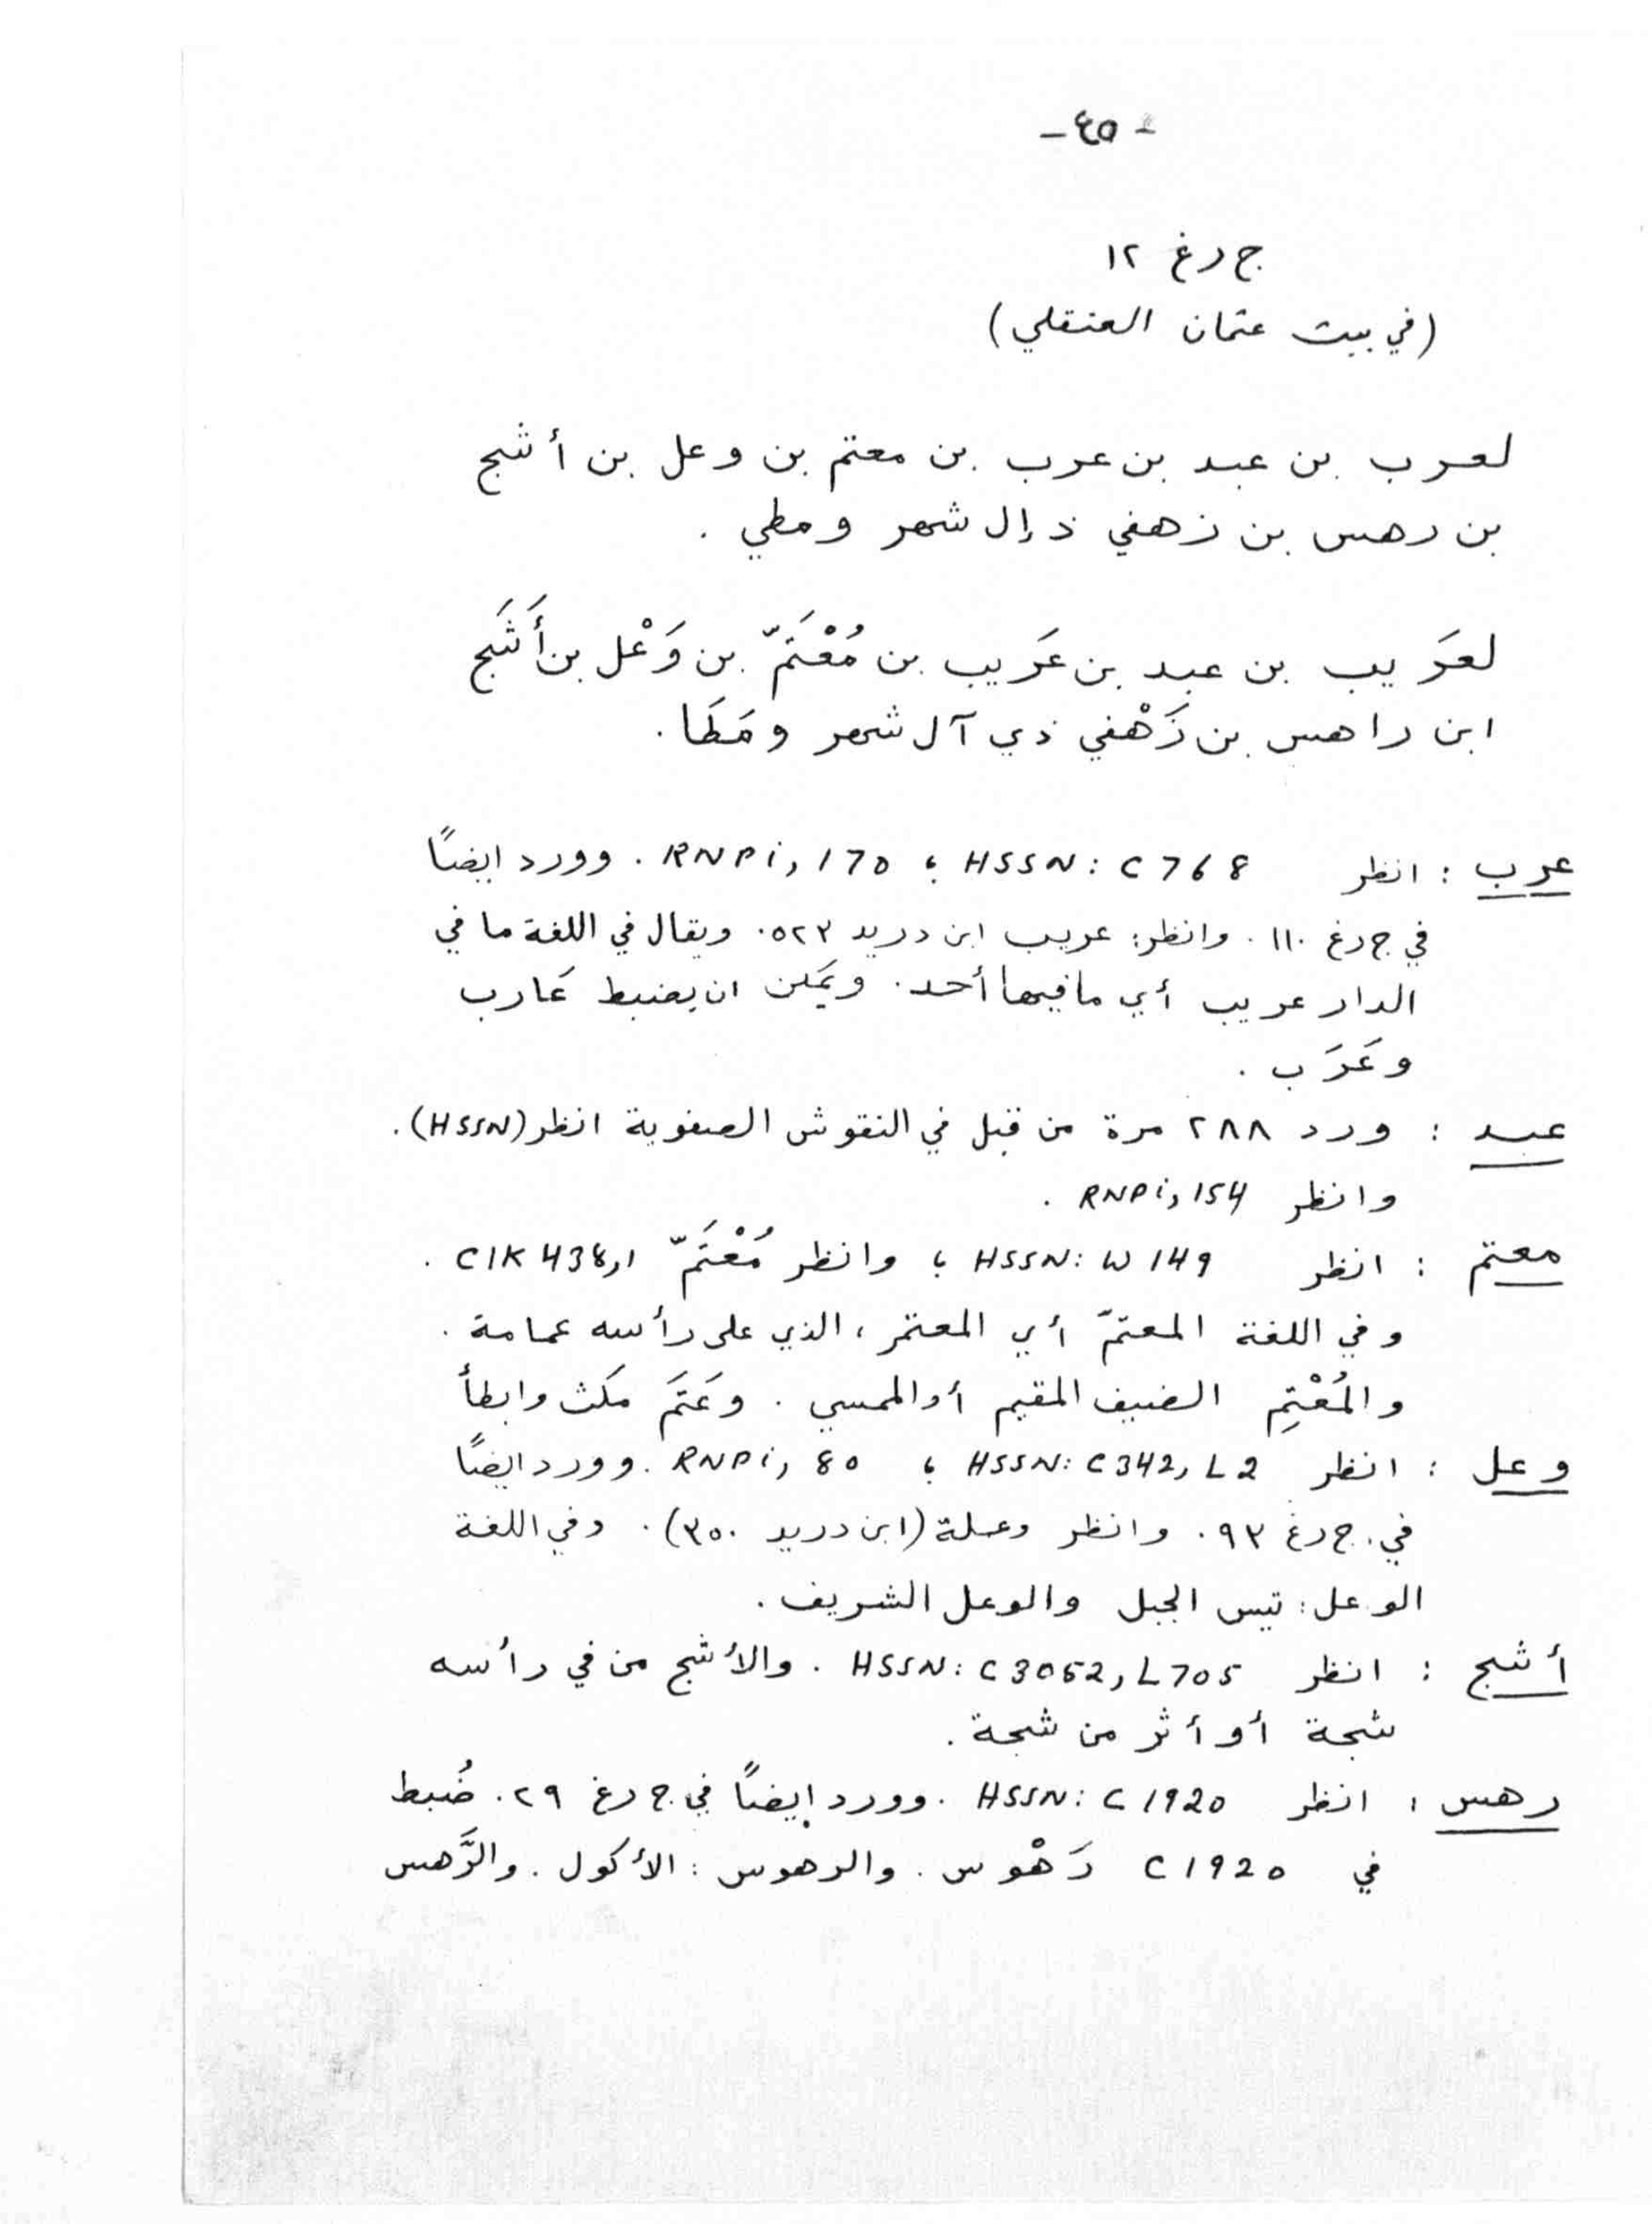 - ٤٥ -
ج رغ ١٢
(في بيت عثمان العنقلي)
لعرب بن عبد بن عرب بن معتم بن وعل بن أشج
بن رهس بن زهفي ذ إل شهر ومطي .
لعَريب بن عبد بن عَريب بن مُعْتَمّ بن وَعْل بن أَشَج
ابن راهس بن زَهْفي ذي آل شهر ومَطَا .
عرب : انظر HSSN: C768 ؛ RNPi, 170 . وورد ايضاً
في ج رغ ١١٠ . وانظر: عريب ابن دريد ٥٢٣ . ويقال في اللغة ما في
الدار عريب أي ما فيها أحد . ويمكن ان يضبط عَارب
وعَرَب .
عبد : ورد ٢٨٨ مرة من قبل في النقوش الصفوية انظر (HSSN) .
وانظر RNPi, 154 .
معتم : انظر HSSN: W149 ؛ وانظر مُعْتَمّ CIK 438,1 .
وفي اللغة المعتمّ أي المعتمر ، الذي على رأسه عمامة .
والمُعْتِم الضيف المقيم أو الممسي . وعَتَمَ مكث وابطأ
وعل : انظر HSSN: C342, L2 ؛ RNPi, 80 . وورد ايضاً
في ج رغ ٩٣ . وانظر وعلة (ابن دريد ٣٥٠) . وفي اللغة
الوعل : تيس الجبل والوعل الشريف .
أشج : انظر HSSN: C3052, L705 . والأشج من في رأسه
شجة أو أثر من شجة .
رهس : انظر HSSN: C1920 . وورد ايضاً في ج رغ ٢٩ . ضُبط
في C1920 رَهْوس . والرهوس : الأكول . والرَّهس